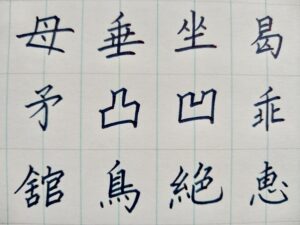 母垂坐曷
矛凸凹乖
舘鳥絶恵